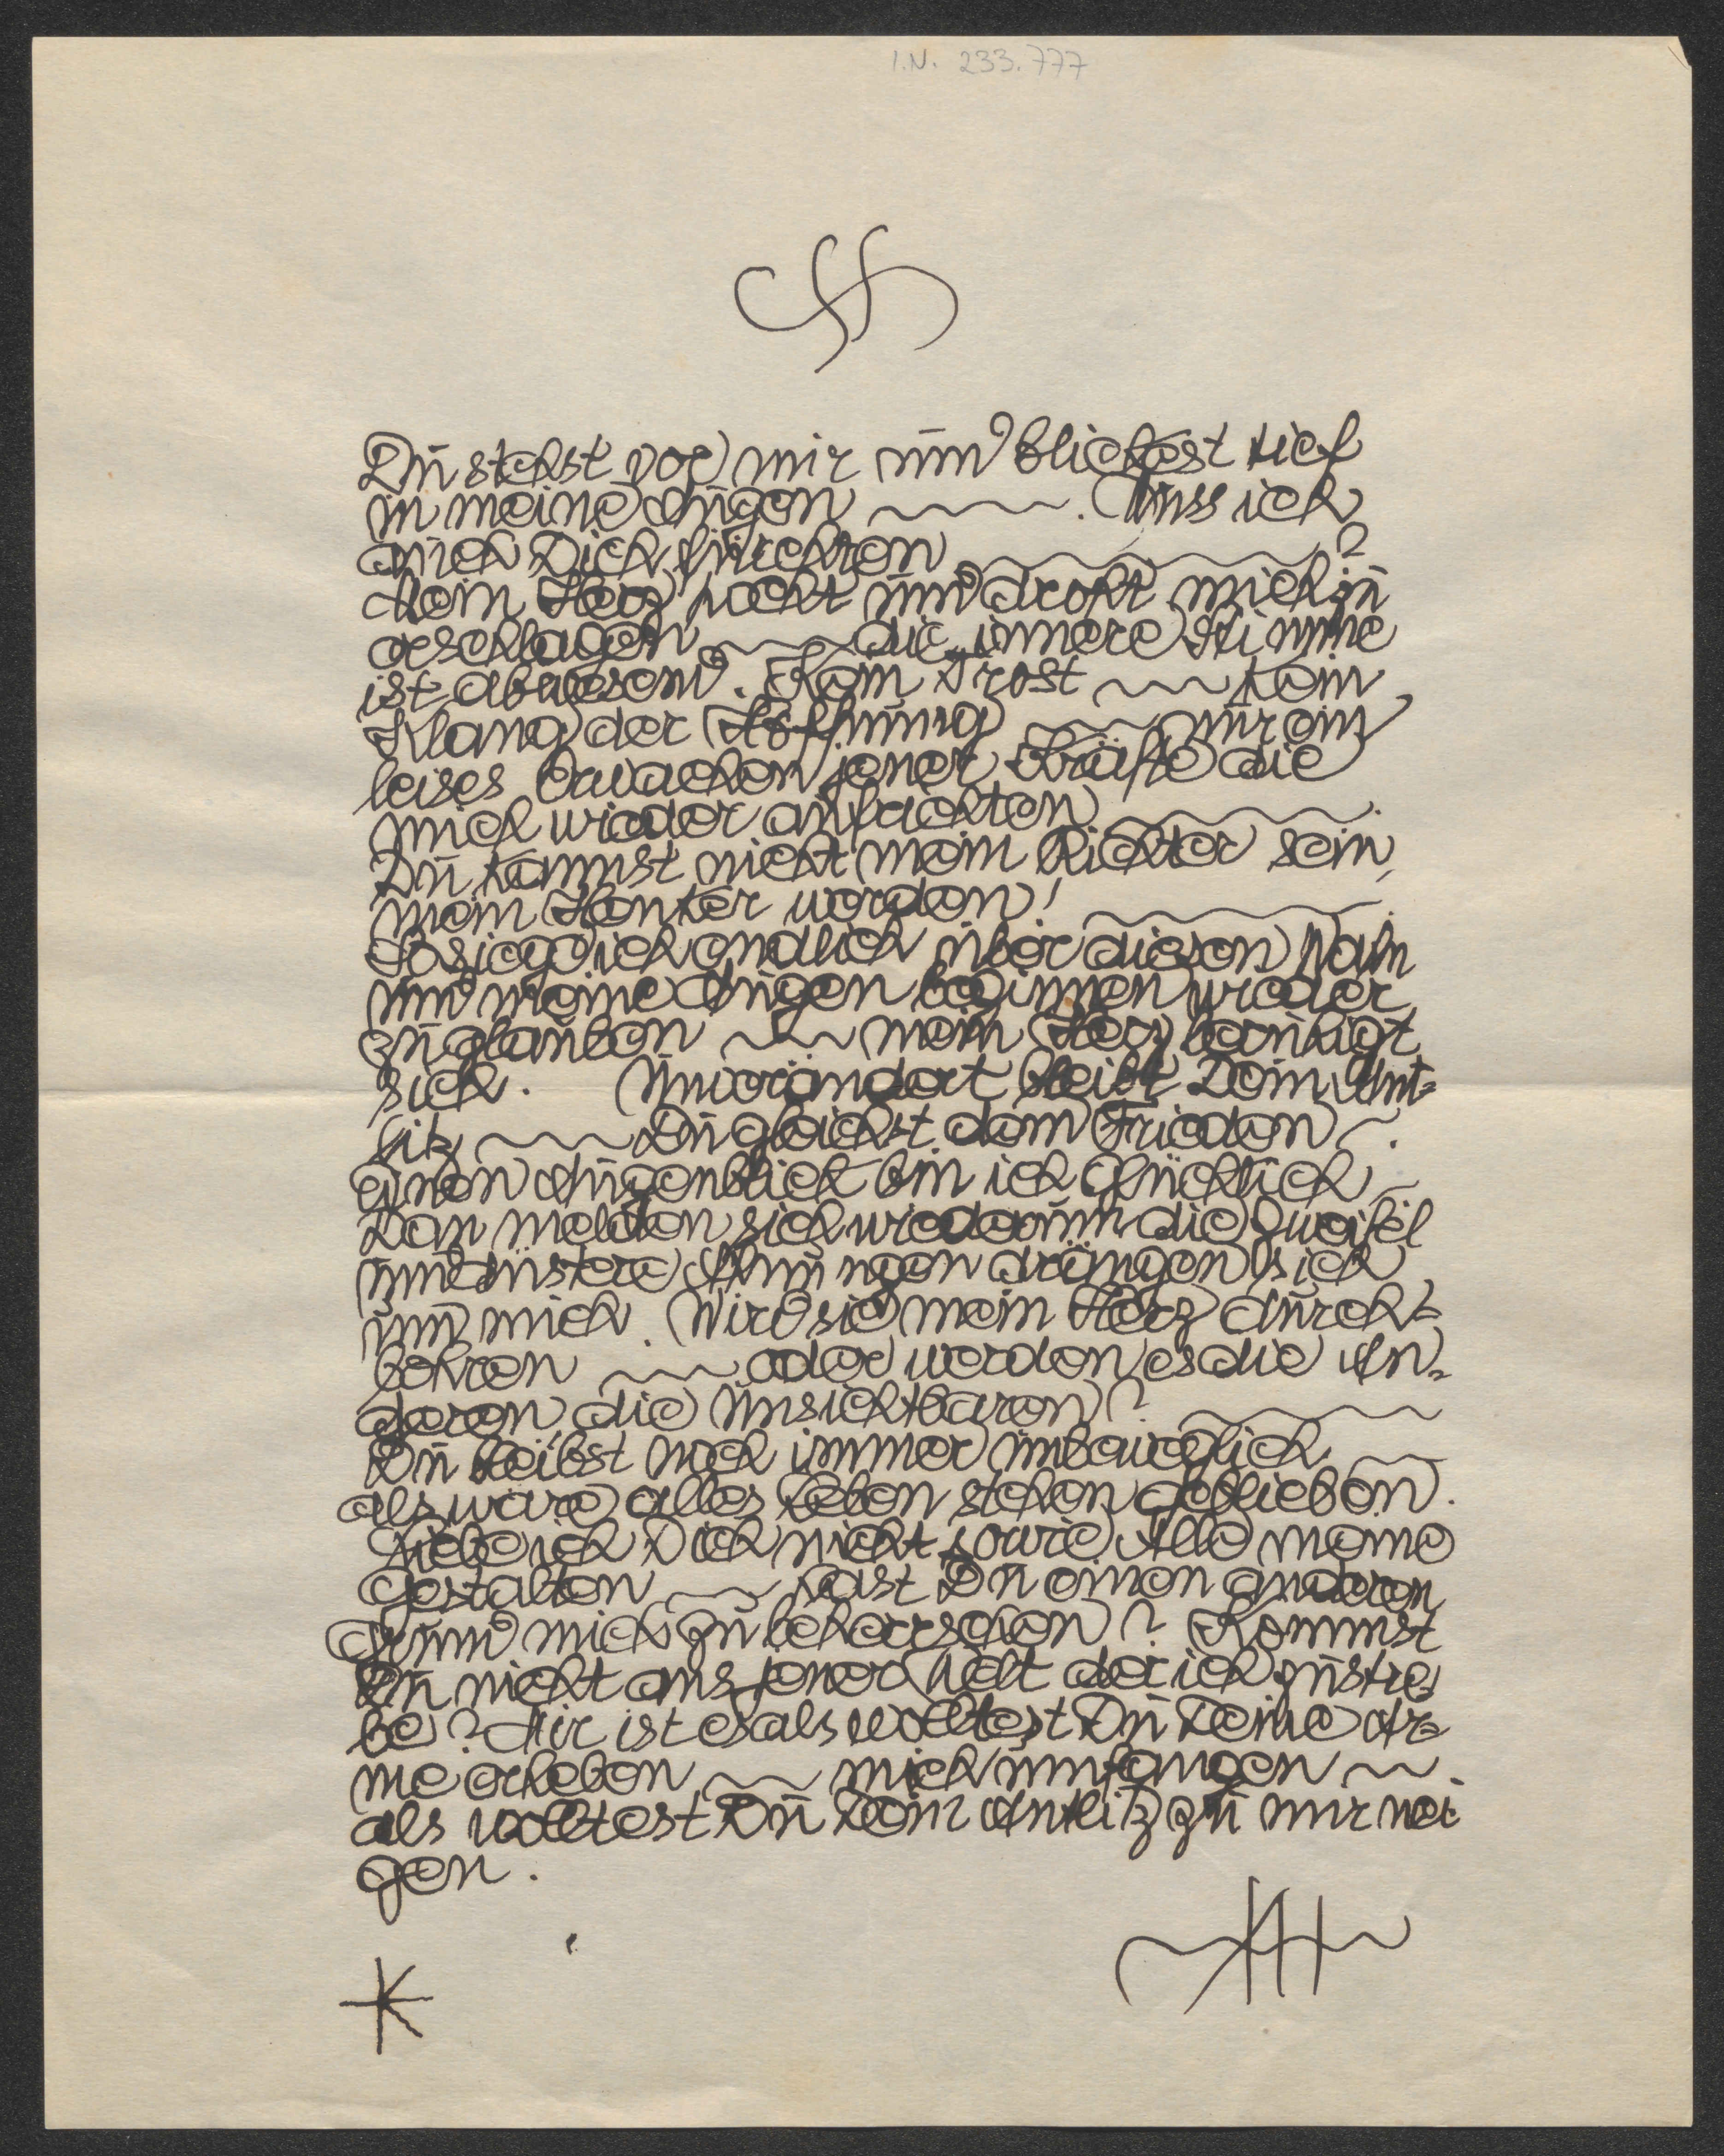 I.N. 233.777
Du stehst vor mir und blickest tief
in meine Augen ~~~. Muss ich
auch Dich fürchten ~~~?
Mein Herz pocht und droht mich zu
erschlagen ~~~ die innere Stimme
ist abwesend. Kein Trost ~~~ kein
Klang der Hoffnung ~~~ nur ein
leises Erwachen jener Kräfte die
mich wieder aufrichten ~~~.
Du kannst nicht mein Richter sein,
mein Henker werden! ~~~.
So siege ich endlich über diesen Wahn
und meine Augen beginnen wieder
zu glauben ~~~ mein Herz beruhigt
sich. Unverändert bleibt Dein Ant=
litz ~~~ Du gleichst dem Frieden ~.
Einen Augenblick bin ich glücklich ~
Dan melden sich wiederum die Zweifel
und düstere Ahnungen drängen sich
um mich. Wirst sie mein Herz durch=
bohren ~~~ oder werden es die An=
deren, die Unsichtbaren? ~~~
Du bleibst noch immer unbeweglich ~~~
als wäre alles Leben stehen geblieben.
Liebe ich Dich nicht so wie Alle meine
Gestalten ~~~ hast Du einen anderen
Grund mich zu beherrschen? Kommst
Du nicht aus jener Welt der ich zustre=
be? Mir ist es als wolltest Du Deine Ar=
me erheben ~~~ mich umfangen ~~~.
als wolltest Du Dein Antlitz zu mir nei
gen.